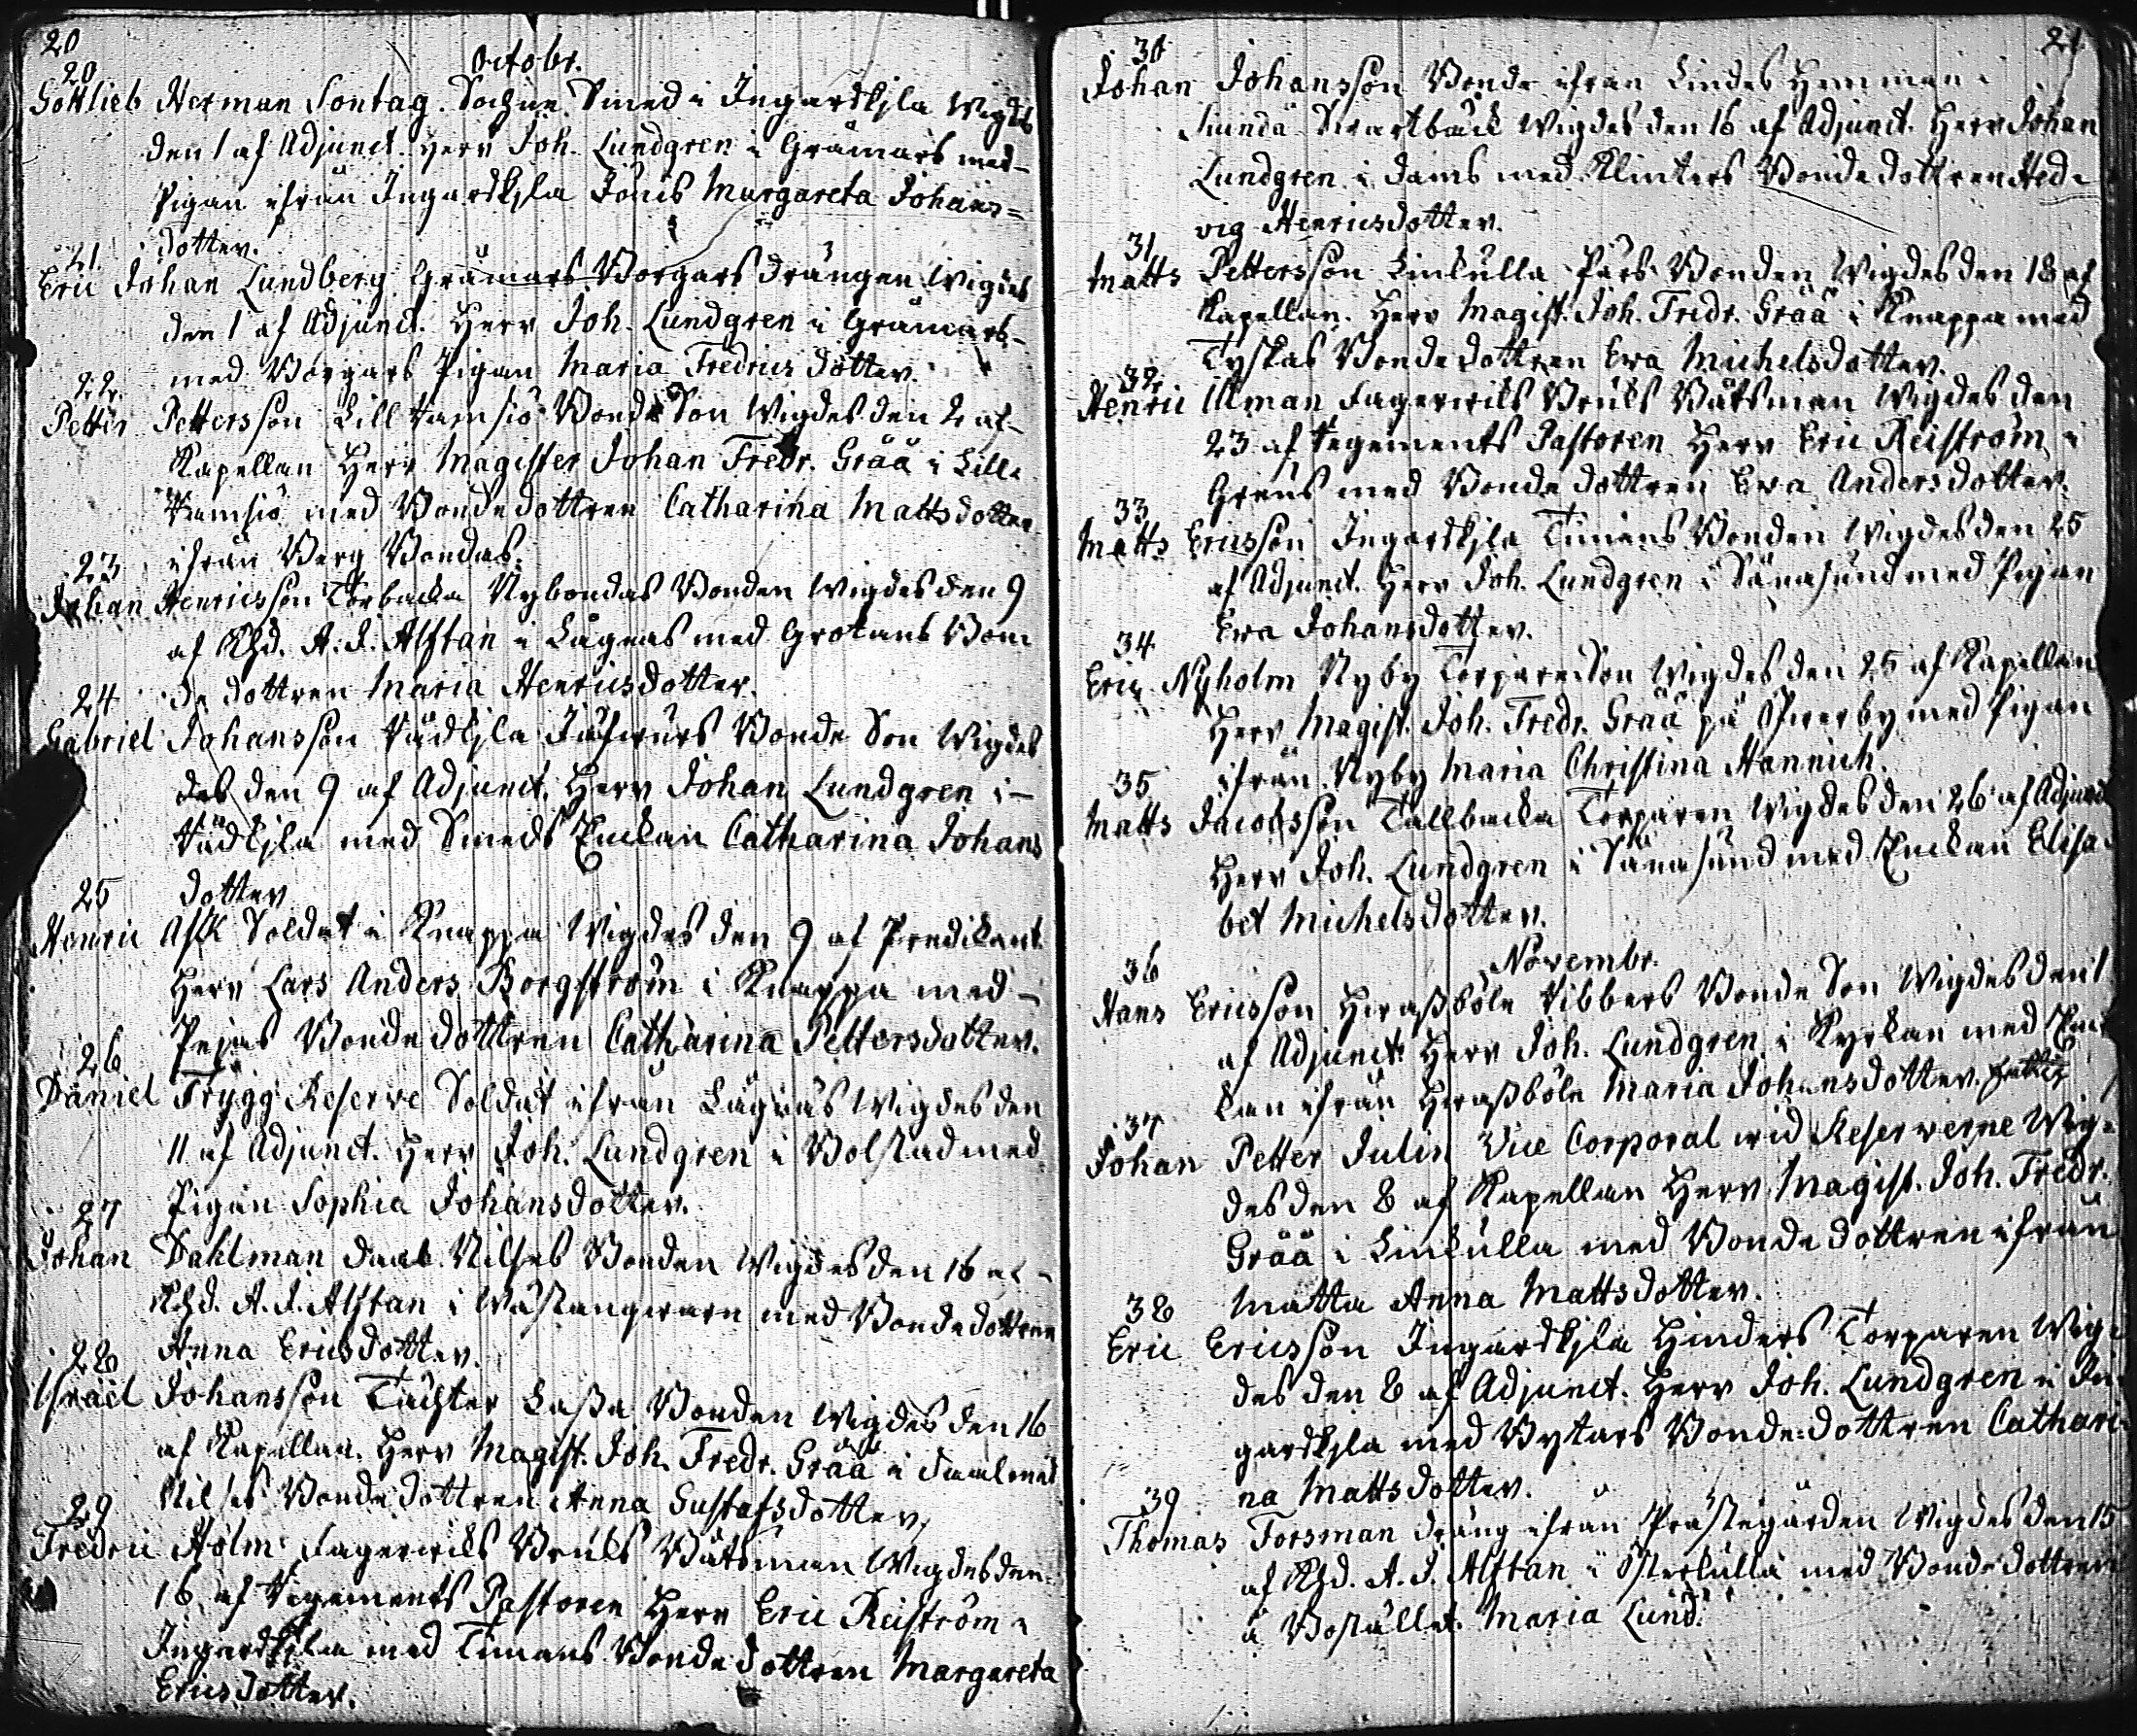 20
Octobr.
20
Gottlieb Herman Sontag. Sochne Smed i Ingardskjla Wigdes
den 1 af Adjunct. Herr Joh. Lundgren i Gråmars med
Pigan ifrån Ingardskjla Jönis Margareta Johans=
dotter.
21.
Eric Johan Lundberg Gråmars Borgars Drängen Wigdes
den 1 af Adjunct. Herr Joh. Lundgren i Gråmars
med Borgars Pigan Maria Fredrics dotter.
22.
Petter Pettersson Lill Ramsiö Bonde Son Wigdes den 2 af
Kapellan Herr Magister Johan Fredr. Gråå i Lill
Ramsiö med Bondedottren Catharina Mattsdotter
ifrån Berg Bondas.
23
Johan Henricsson Torbacka Nybondas Bonden Wigdes den 9
af Khd. A. J. Alftan i Lågnäs med Grotans Bon
de dottren Maria Henricsdotter.
24
Gabriel Johansson Rådkjla Bonde Son Wigdes
des den 9 af Adjunct. Herr Johan Lundgren i
Rådkjla med Smeds Enckan Catharina Johans
dotter
25
Henric Ask Soldat i Knappa Wigdes den 9 af Predikant
Herr Lars Anders Borgström i Knappa med
Pejas Bondedottren Catharina Pettersdotter.
26
Daniel Trygg Reserve Soldat ifrån Lågnäs Wigdes den
11 af Adjunct. Herr Joh. Lundgren i Bolstad med
Pigan Sophia Johansdotter.
27
Johan Dahlman Daal Nilses Bonden Wigdes den 16 af
Khd. A. J. Alftan i Wästanqwarn med Bondedottren
Anna Ericsdotter.
28
Israel Johansson Täckter Lassa Bonden Wigdes den 16
af Kapellan. Herr Magist. Joh. Fredr. Gråå i Daal med
Nilses Bondedottren Anna Gustafsdotter.
29
Fredric Holm Fagerwiks Bruks Båtsman Wigdes den
16 af Regements Pastoren Herr Eric Reiström i
Ingardskjla med Timans Bondedottren Margareta
Ericsdotter.
21
30
Johan Johansson Bonde ifrån Lindes Hemman i
Siundå Swartbäck Wigdes den 16 af Adjunct. Herr Johan
Lundgren i Dams med Klinters Bondedottren Hed
vig Henricsdotter.
31
Matts Pettersson Linkulla Pärs Bonden Wigdes den 18 af
Kapellan. Herr Magist. Joh. Fredr. Gråå i Knappa med
Tyskas Bondedottren Ewa Michelsdotter.
32
Henric Ulman Fagerwiks Bruks Båtsman Wigdes den
23 af Regements Pastoren Herr Eric Reiström i
Grens med Bondedottren Ewa Andersdotter.
33
Matts Ericsson Ingardskjla Timans Bonden Wigdes den 25
af Adjunct. Herr Joh. Lundgren i Sånasund med Pigan
Ewa Johansdotter.
34
Eric Nyholm Nyby Torpare Son Wigdes den 25 af Kapellan
Herr Magist. Joh. Fredr. Gråå på Öfwerby med Pigan
ifrån Nyby Maria Christina Hannich.
35
Matts Jacobsson Tallbacka Torparen Wigdes den 26 af Adjunct
Herr Joh. Lundgren i Sånasund med Enckan Elisa
bet Michelsdotter.
Novembr.
36
Hans Ericsson Heraßböle Ribbers Bonde Son Wigdes den 1
af Adjunct. Herr Joh. Lundgren i Kyrkan med En
kan ifrån Heraßböle Maria Johansdotter.
37
Johan Petter Julin Vice Corporal wid Reserverne Wig=
des den 8 af Kapellan Herr Magist. Joh. Fredr.
Gråå i Linkulla med Bondedottren ifrån
Matta Anna Mattsdotter.
38
Eric Ericsson Ingardskjla Hinders Torparen Wig=
des den 8 af Adjunct. Herr Joh. Lundgren i In
gardskjla med Bytars Bonde-dottren Cathari
na Mattsdotter.
39
Thomas Forsman Dräng ifrån Prästegården Wigdes den 15
af Khd. A. J. Alftan i Österkulla med Bondedottren
å Bostället Maria Lund.